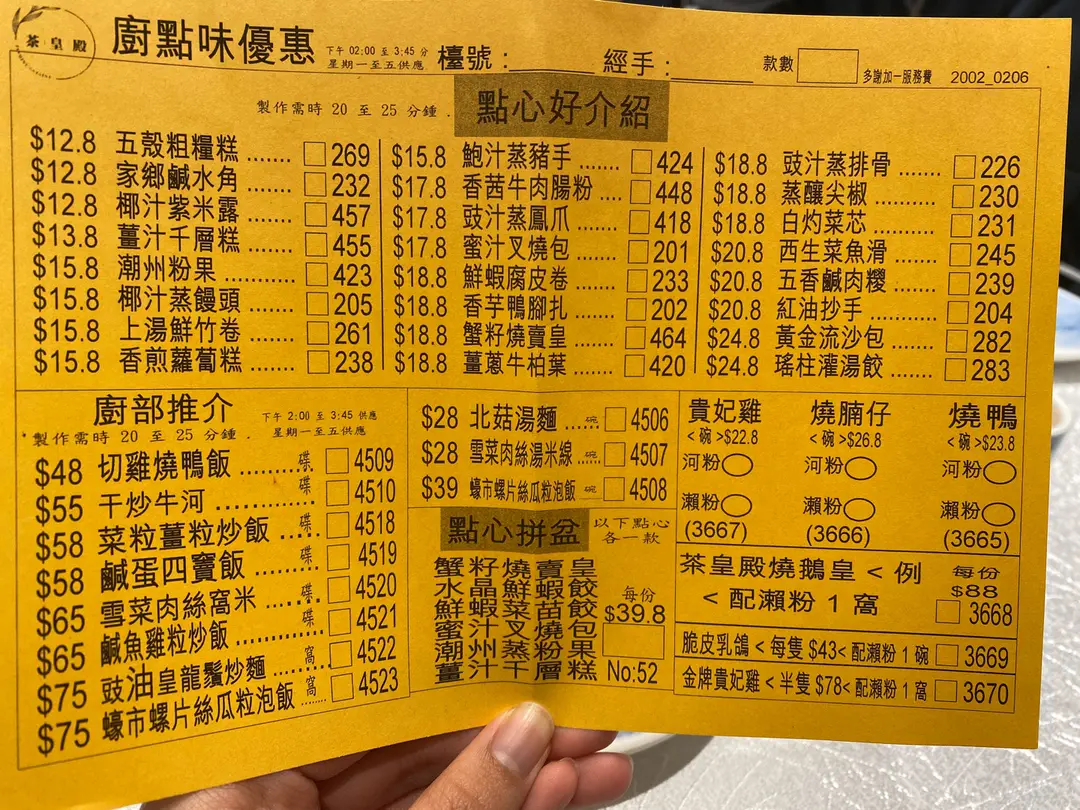 茶皇殿
廚點味優惠
下午 02:00 至 3:45 分
星期一至五供應
檯號：
經手：
款數
多謝加一服務費
2002_0206
製作需時 20 至 25 分鍾．
點心好介紹
$12.8 五殼粗糧糕 ....... 269
$12.8 家鄉鹹水角 ....... 232
$12.8 椰汁紫米露 ....... 457
$13.8 薑汁千層糕 ....... 455
$15.8 潮州粉果 ........... 423
$15.8 椰汁蒸饅頭 ....... 205
$15.8 上湯鮮竹卷 ....... 261
$15.8 香煎蘿蔔糕 ....... 238
$15.8 鮑汁蒸豬手 ....... 424
$17.8 香茜牛肉腸粉 .... 448
$17.8 豉汁蒸鳳爪 ....... 418
$17.8 蜜汁叉燒包 ....... 201
$18.8 鮮蝦腐皮卷 ....... 233
$18.8 香芋鴨腳扎 ....... 202
$18.8 蟹籽燒賣皇 ....... 464
$18.8 薑蔥牛柏葉 ....... 420
$18.8 豉汁蒸排骨 ....... 226
$18.8 蒸釀尖椒 .......... 230
$18.8 白灼菜芯 .......... 231
$20.8 西生菜魚滑 ....... 245
$20.8 五香鹹肉糭 ....... 239
$20.8 紅油抄手 .......... 204
$24.8 黃金流沙包 ....... 282
$24.8 瑤柱灌湯餃 ....... 283
廚部推介
下午 2:00 至 3:45 供應
星期一至五供應
製作需時 20 至 25 分鍾．
$48 切雞燒鴨飯 .......... 碟 4509
$55 干炒牛河 .............. 碟 4510
$58 菜粒薑粒炒飯 ..... 碟 4518
$58 鹹蛋四寶飯 .......... 碟 4519
$65 雪菜肉絲窩米 ...... 碟 4520
$65 鹹魚雞粒炒飯 .......... 碟 4521
$75 豉油皇龍鬚炒麵 ....... 窩 4522
$75 蠔市螺片絲瓜粒泡飯 ....... 窩 4523
$28 北菇湯麵 ...... 碗 4506
$28 雪菜肉絲湯米線 ..... 碗 4507
$39 蠔市螺片絲瓜粒泡飯 碗 4508
點心拼盆
以下點心
各一款
蟹籽燒賣皇
水晶鮮蝦餃
鮮蝦菜苗餃
蜜汁叉燒包
潮州蒸粉果
薑汁千層糕
每份
$39.8
No:52
貴妃雞 燒腩仔 燒鴨
< 碗 >$22.8 < 碗 >$26.8 < 碗 >$23.8
河粉 河粉 河粉
瀨粉 瀨粉 瀨粉
(3667) (3666) (3665)
茶皇殿燒鵝皇 < 例
< 配瀨粉 1 窩
每份
$88
3668
脆皮乳鴿 < 每隻 $43< 配瀨粉 1 碗 3669
金牌貴妃雞 < 半隻 $78< 配瀨粉 1 窩 3670